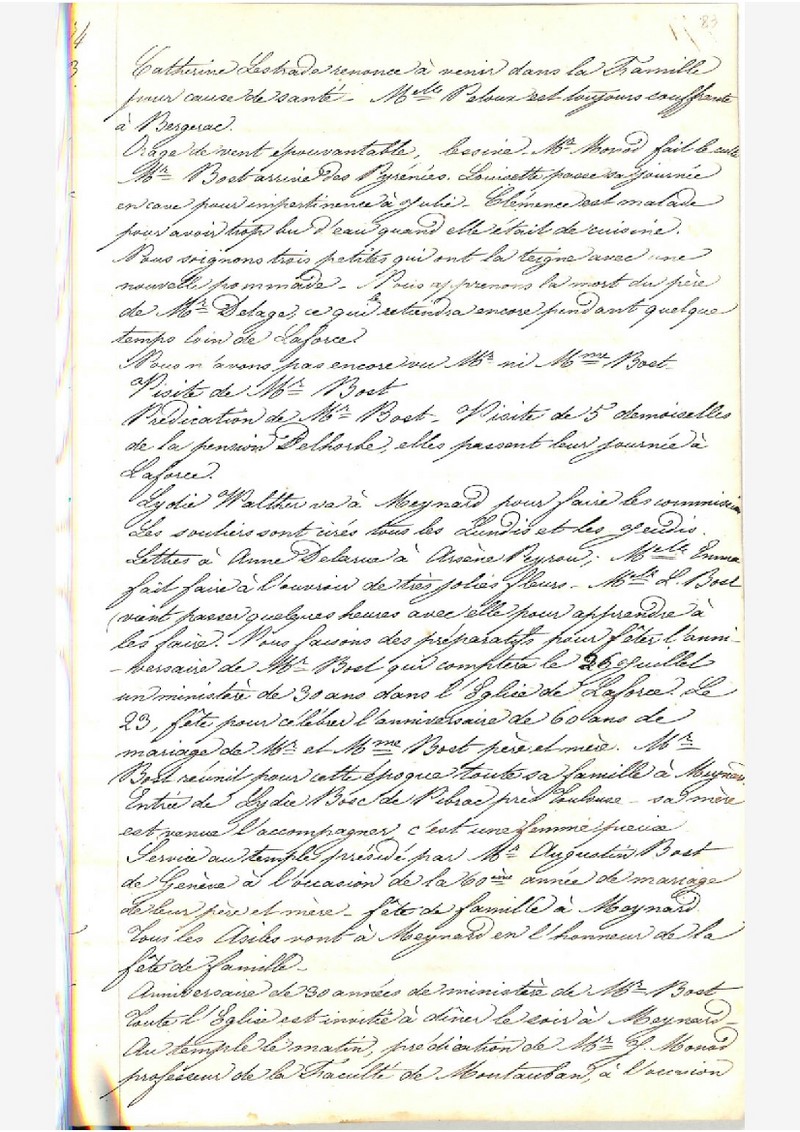 83
4
3
Catherine Lestrade renonce à venir dans la Famille
pour cause de santé - Melle Peloux est toujours souffrante
à Bergerac.
Orage de vent épouvantable, lessive. Mr Monod fait le culte
Mr Bost arrive des Pyrénées. Louisette passe sa journée
en cave pour impertinence à Julie. Clémence est malade
pour avoir trop bu d'eau quand elle était de cuisine.
Nous soignons trois petites qui ont la teigne avec une
nouvelle pommade - Nous apprenons la mort du père
de Mr Delage, ce qui le retiendra encore pendant quelque
temps loin de Laforce.
Nous n'avons pas encore vu Mr ni Mme Bost
Visite de Mr Bost
Prédication de Mr Bost - Visite de 5 demoiselles
de la pension Delhorbe, elles passent leur journée à
Laforce.
Lydie Walther va à Meynard pour faire les commissions
Les souliers sont cirés tous les Lundis et les Jeudis.
Lettres à Anne Delarue à Arsène Peyrou, Melle Emma
fait faire à l'ouvroir de très jolies fleurs - Melle L. Bost
vient passer quelques heures avec elle pour apprendre à
les faire. Nous faisons des préparatifs pour fêter l'anni-
-versaire de Mr Bost qui comptera le 26 Juillet
un ministère de 30 ans dans l'Eglise de Laforce. Le
23, fête pour célébrer l'anniversaire de 60 ans de
mariage de Mr et Mme Bost père et mère. Mr
Bost réunit pour cette époque toute sa famille à Meynard
Entrée de Lydie Bosc de Pibrac près Toulouse - sa mère
est venue l'accompagner c'est une femme pieuse
Service au temple présidé par Mr Augustin Bost
de Genève à l'occasion de la 60ème année de mariage
de leur père et mère - fête de famille à Meynard
Tous les Asiles vont à Meynard en l'honneur de la
fête de famille -
Anniversaire de 30 années de ministère de Mr Bost
Toute l'Eglise est invitée à dîner le soir à Meynard -
Au temple le matin, prédication de Mr J. Monod
professeur de la Faculté de Montauban, à l'occasion